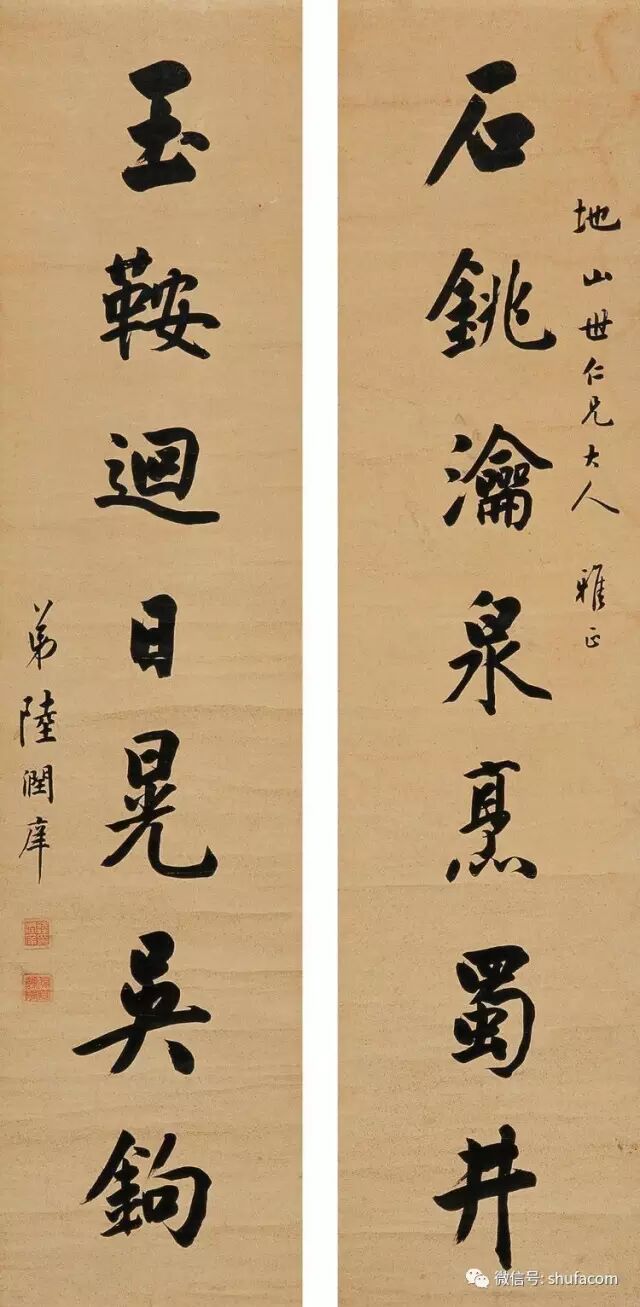 地山世仁兄大人 雅正
石銚瀹泉烹蜀井
玉鞍迴日晃吳鉤
弟陸潤庠
微信号: shufacom